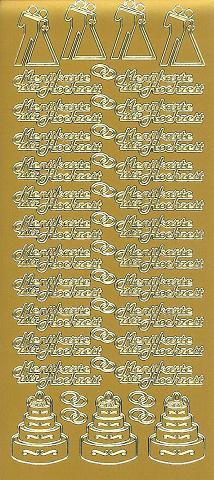 Menükarte Menükarte
zur Hochzeit zur Hochzeit
Menükarte Menükarte
zur Hochzeit zur Hochzeit
Menükarte Menükarte
zur Hochzeit zur Hochzeit
Menükarte Menükarte
zur Hochzeit zur Hochzeit
Menükarte Menükarte
zur Hochzeit zur Hochzeit
Menükarte Menükarte
zur Hochzeit zur Hochzeit
Menükarte Menükarte
zur Hochzeit zur Hochzeit
Menükarte Menükarte
zur Hochzeit zur Hochzeit
Menükarte Menükarte
zur Hochzeit zur Hochzeit
Menükarte Menükarte
zur Hochzeit zur Hochzeit
Menükarte Menükarte
zur Hochzeit zur Hochzeit